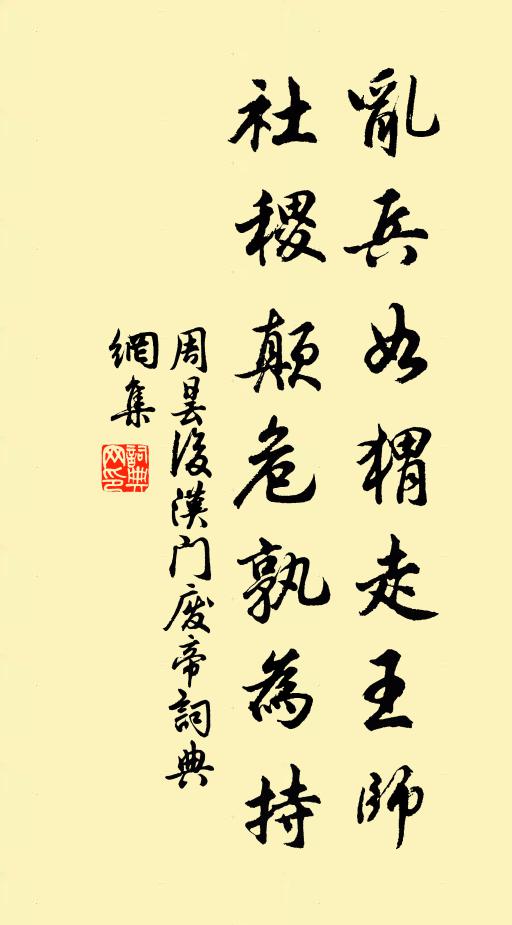 亂兵如猬走王師
社稷顛危孰為持
周曇後漢門廢帝詞典
網集
詞典網印